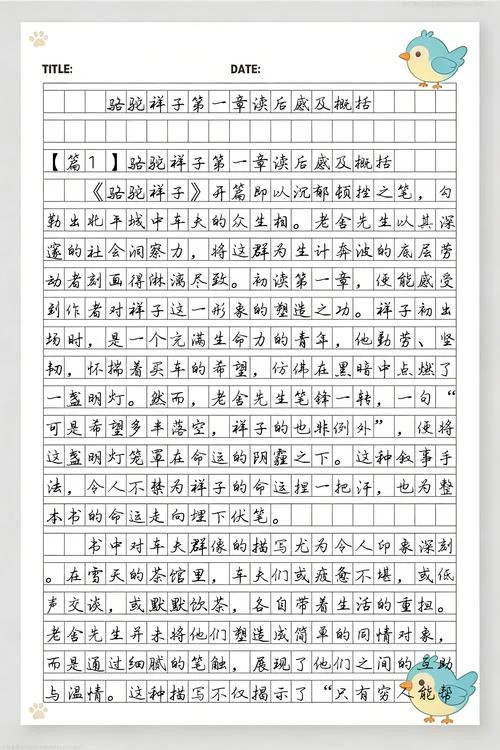 TITLE: DATE:
骆驼祥子第一章读后感及概括
【篇1】骆驼祥子第一章读后感及概括
《骆驼祥子》开篇即以沉郁顿挫之笔，勾
勒出北平城中车夫的众生相。老舍先生以其深
邃的社会洞察力，将这群为生计奔波的底层劳
动者刻画得淋漓尽致。初读第一章，便能感受
到作者对祥子这一形象的塑造之功。祥子初出
场时，是一个充满生命力的青年，他勤劳、坚
韧，怀揣着买车的希望，仿佛在黑暗中点燃了
一盏明灯。然而，老舍先生笔锋一转，一句“
可是希望多半落空，祥子的也非例外”，便将
这盏明灯笼罩在命运的阴霾之下。这种叙事手
法，令人不禁为祥子的命运捏一把汗，也为整
本书的命运走向埋下伏笔。
书中对车夫群像的描写尤为令人印象深刻
。在雪天的茶馆里，车夫们或疲惫不堪，或低
声交谈，或默默饮茶，各自带着生活的重担。
老舍先生并未将他们塑造成简单的同情对象，
而是通过细腻的笔触，展现了他们之间的互助
与温情。这种描写不仅揭示了“只有穷人能帮